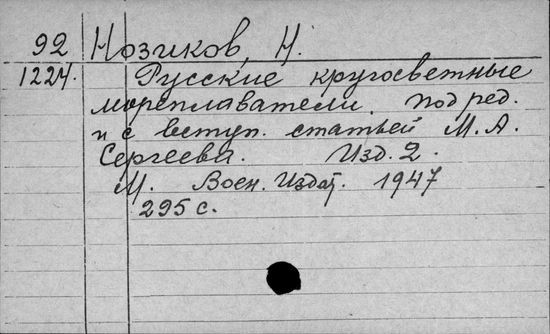 92 Нозиков, Н.
1224. Русские кругосветные
мореплаватели. Под ред.
и с вступ. статьей М.А.
Сергеева. Изд. 2.
М. Воен. Издат. 1947
295 с.